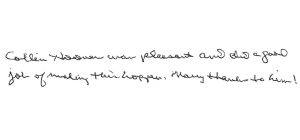 Collin Hoover was pleasant and did a good
job of making this happen. Many thanks to him!